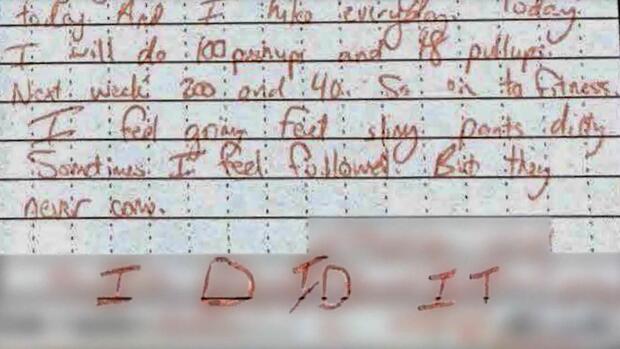 today. And I hike everyday. Today
I will do 100 pushups and 48 pullups.
Next week 200 and 40. So on to fitness.
I feel grimy feel slimy pants dirty
Sometimes I feel followed. But they
never come.
I D I/D IT